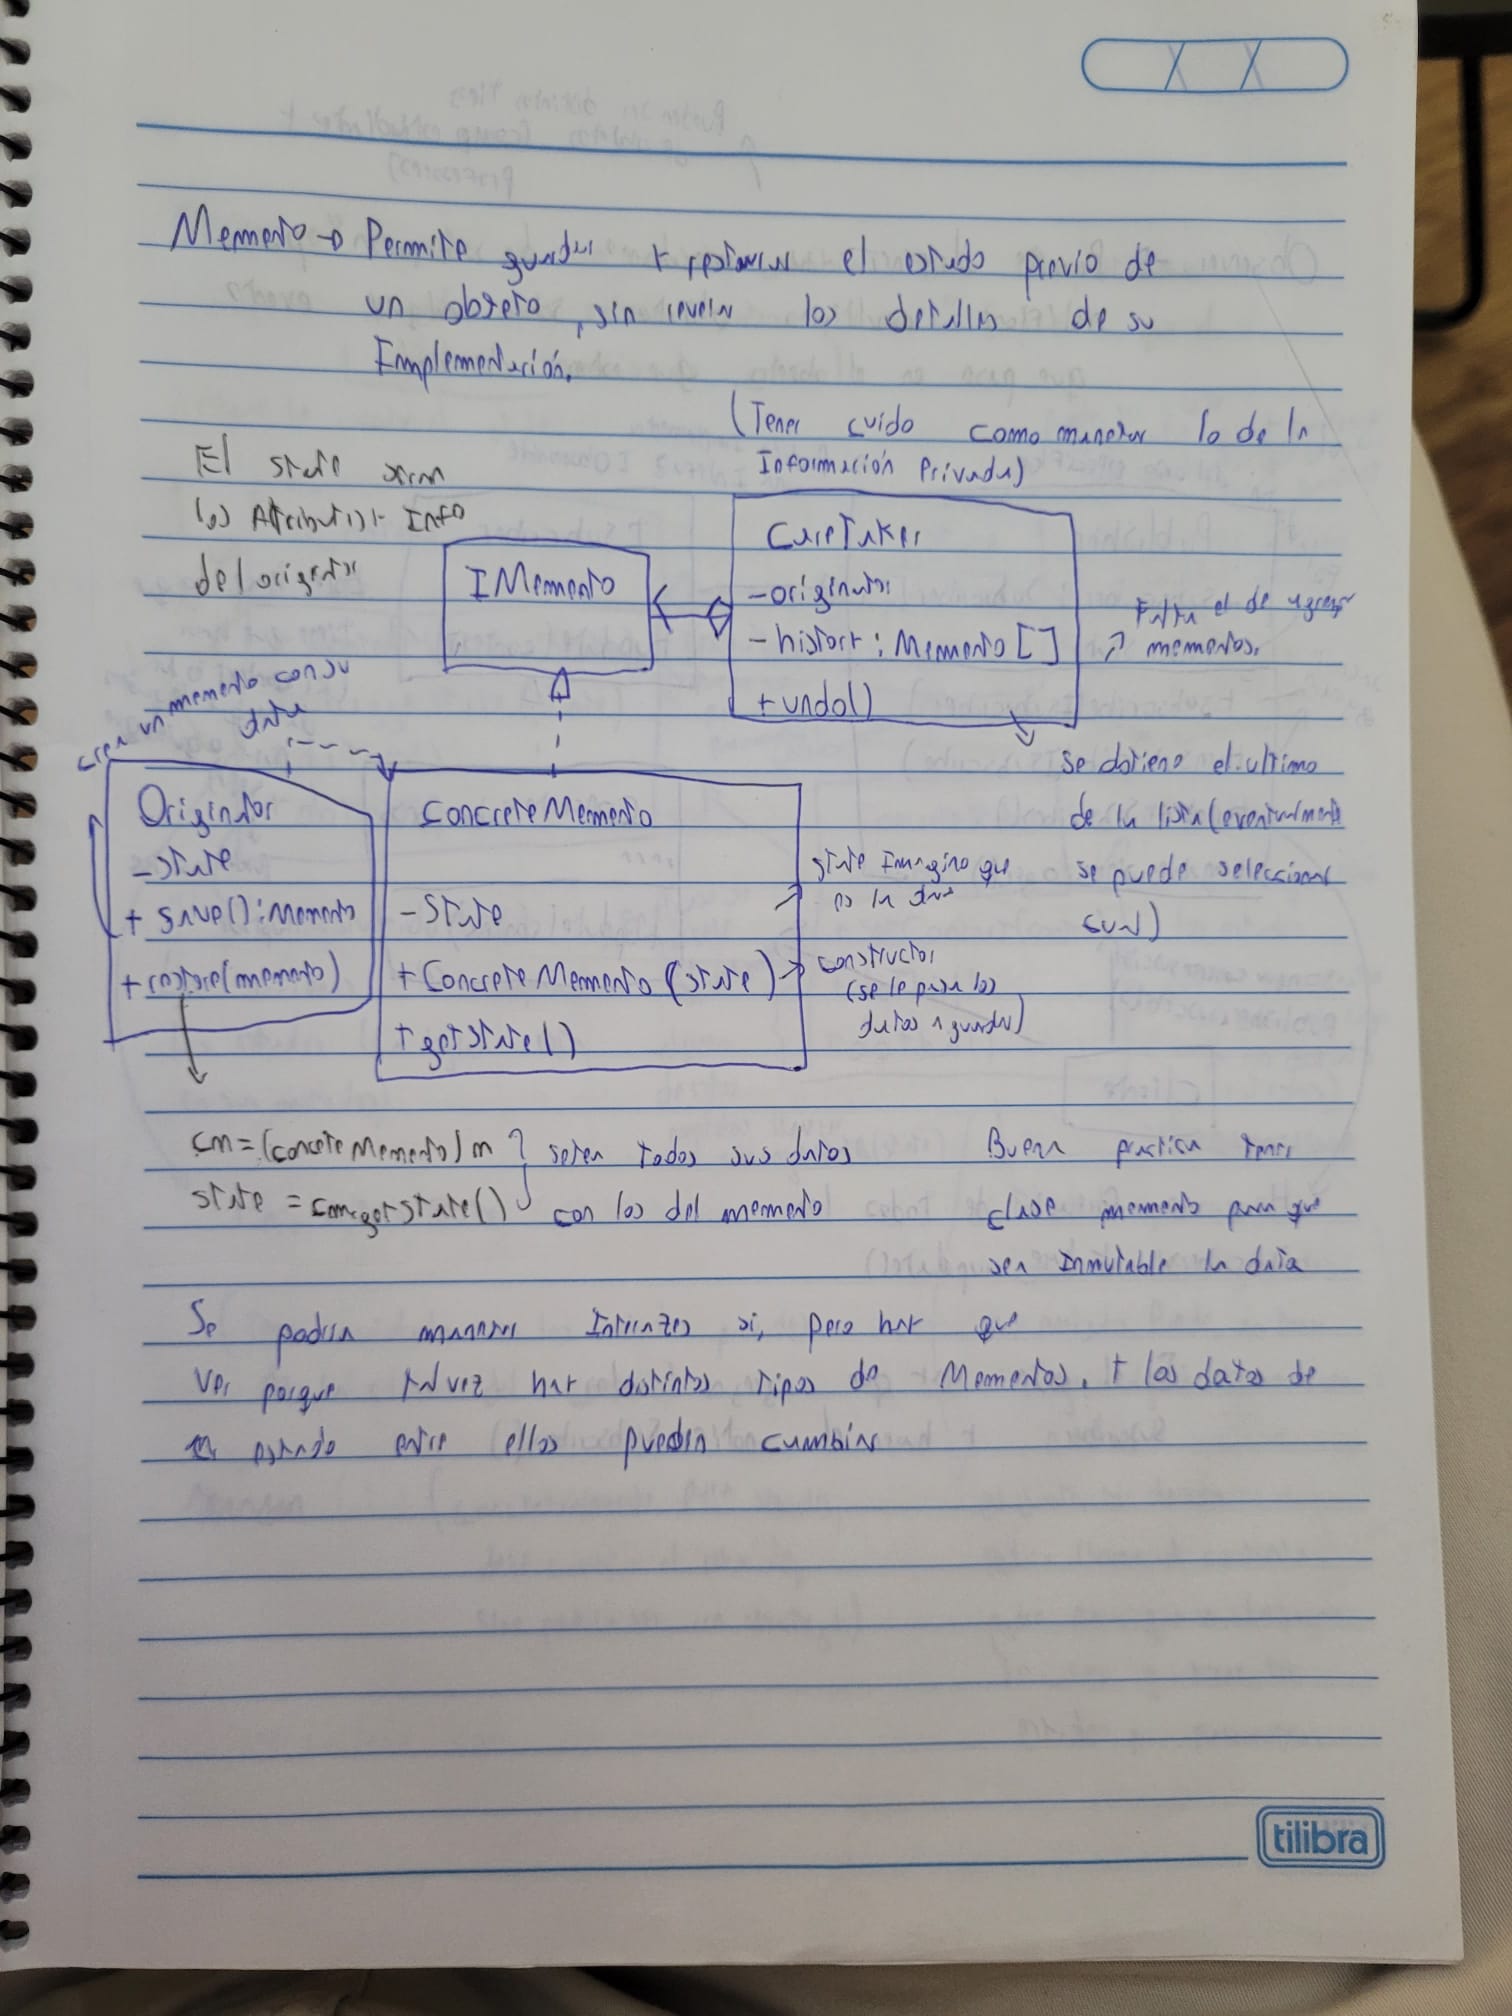 Memento → Permite guardar y restaurar el estado previo de
un objeto, sin revelar los detalles de su
Implementación.
(Tener cuido como manejar lo de la
Información Privada)
El state seran
los Atributos y Info
del originator
IMemento
CareTaker
- originator
- history : Memento []
+ undo()
Falta el de agregar
mementos.
se obtiene el ultimo
de la lista (eventualmente
se puede seleccionar
cual)
crea un memento con su
data
Originator
- state
+ save() : Memento
+ restore(memento)
ConcreteMemento
- State
+ ConcreteMemento (state)
+ getState()
state Imagino que
es la data
constructor
(se le pasa los
datos a guardar)
cm = (concreteMemento) m
state = cm.getState()
setea todos sus datos
con los del memento
Buena practica tener
clase memento para que
sea Inmutable la data
Se podria manejar Interfazes si, pero hay que
ver porque talvez hay distintos tipos de Mementos, y los datos de
estado entre ellos puedan cambiar
tilibra